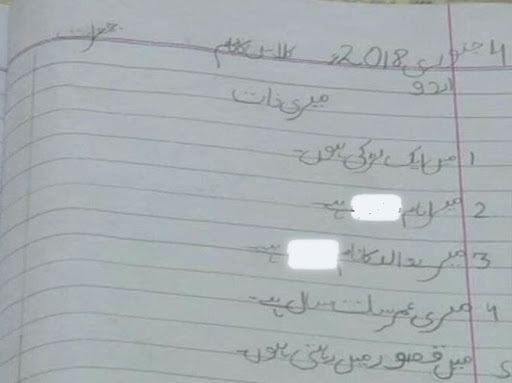 جمعرات کلاس کا کام 4 جنوری 2018ء
اردو
میری ذات
1 میں ایک لڑکی ہوں۔
2 میرا نام ہے۔
3 میرے والد کا نام ہے۔
4 میری عمر سات سال ہے۔
5 میں قصور میں رہتی ہوں۔